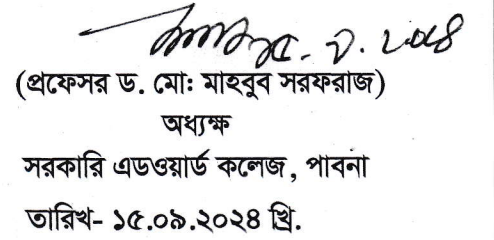 (প্রফেসর ড. মোঃ মাহবুব সরফরাজ)
অধ্যক্ষ
সরকারি এডওয়ার্ড কলেজ, পাবনা
তারিখ- ১৫.০৯.২০২৪ খ্রি.